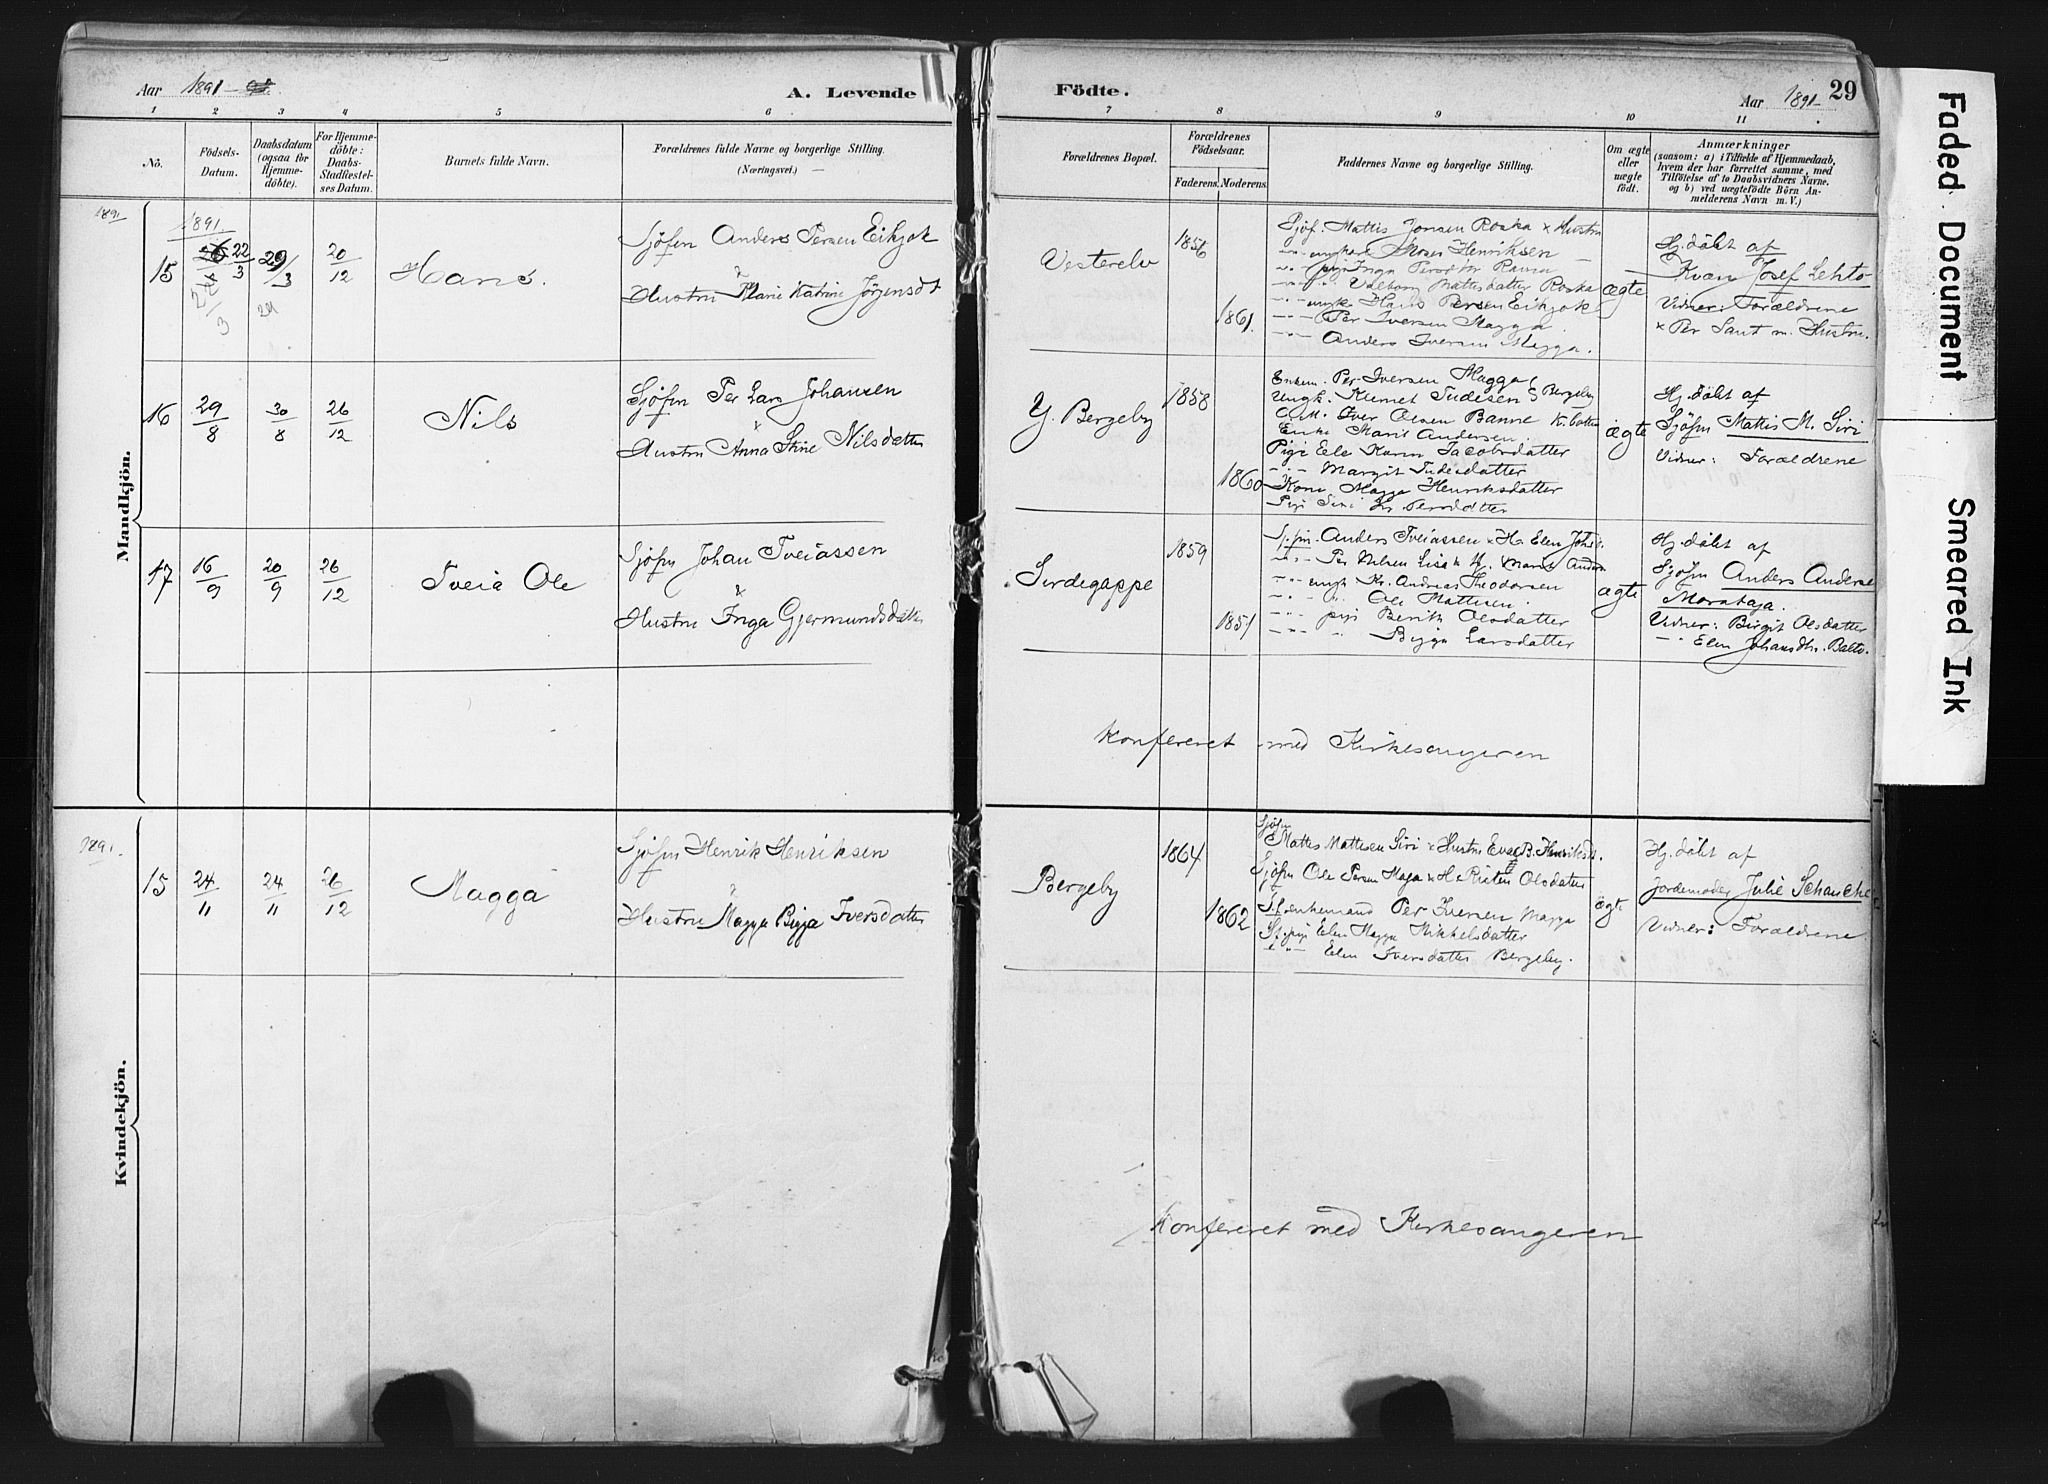 Aar 1891
A. Levende
Födte.
Aar 1891
29
1 2 3 4 5 6
7 8 9 10 11
Nö.
Födsels-
Datum.
Daabsdatum
(ogsaa for
Hjemme-
döbte).
For Hjemme-
döbte:
Daabs-
Stadfæstel-
ses Datum.
Barnets fulde Navn.
Forældrenes fulde Navne og borgerlige Stilling.
(Næringsvei.)
Forældrenes Bopæl.
Forældrenes
Födselsaar.
Faderens.
Moderens.
Faddernes Navne og borgerlige Stilling.
Om ægte
eller
uægte
födt.
Anmærkninger
(saasom: a) i Tilfælde af Hjemmedaab,
hvem der har forrettet samme, med
Tilföielse af to Daabsvidners Navne.
og b) ved uægtefödte Börn An-
melderens Navn m. V.)
Mandkjön.
1891
1891.
15
22/3
29/3
20/12
Hans.
Sjöfin Anders Persen Eikjok
x
Hustru Marie Katrine Jörgensdt
Vesterelv
1856
1861.
Sjöf. Mattis Jonsen Roska x Hustru
ungkarl Moses Henriksen
" pige Inga Persdtr Ravna
" " Valborg Mattisdatter Roska
" ungk. Hans Persen Eikjok
" " Per Iversen Magga.
" " Anders Iversen Magga.
ægte
Hj. döbt af
Kvæn Josef Lehto
Vidner: Forældrene
x Per Saut m. Hustru.
16
29/8
30/8
26/12
Nils
Sjöfin Per Lars Johansen
x
Hustru Anna Stine Nilsdatter
Y. Bergeby
1858
1860
Enkem. Per Iversen Magga, Bergeby
Ungk. Klemet Tudesen
G.M. Iver Olsen Banne
Enke Marit Andersen.
Pige Ele Karen Jacobsdatter
" " Margit Tudesdatter
Kone Magga Henriksdatter
Pige Siri Persdatter
ægte
Hj. döbt af
Sjöfin Mattis M. Siri
Vidner: Forældrene
17
16/9
20/9
26/12
Tveia Ole
Sjöfin Johan Tveiassen
x
Hustru Inga Gjermundsdatter
Sirdegappe
1859
1851
Sjfin. Anders Tveiassen x H. Elen Johsd.
" " Per Nilsen Lisa x H. Marit Andersd
" " ungk. Kr. Andreas Theodorsen
" " " Ole Mattisen.
" " pige Berith Olsdatter
" " " Bigga Larsdatter
ægte
Hj. döbt af
Sjöfin Anders Anderse
Morataja.
Vidner: Birgit Olsdatter
" Elen Johansdtr. Balto.
Konfereret med Kirkesangeren
Kvindekjön.
1891.
15
24/11
24/11
26/12
Magga
Sjöfin Henrik Henriksen
x
Hustru Magga Bigja Iversdatter
Bergeby
1864
1862
Sjöfin
Mattis Mattisen Siri x Hustru Eva B. Henriksdt.
Sjöfin Ole Persen Maga x H. Risten Olsdatter
Sf. enkemand Per Iversen Magga
Sf. pige Elen Magga Mikkelsdatter
" " Elen Iversdatter Bergeby.
ægte
Hj. döbt af
jordemoder Julie Schanche
Vidner: Forældrene.
Konfereret med Kirkesangeren
Faded Document
Smeared Ink